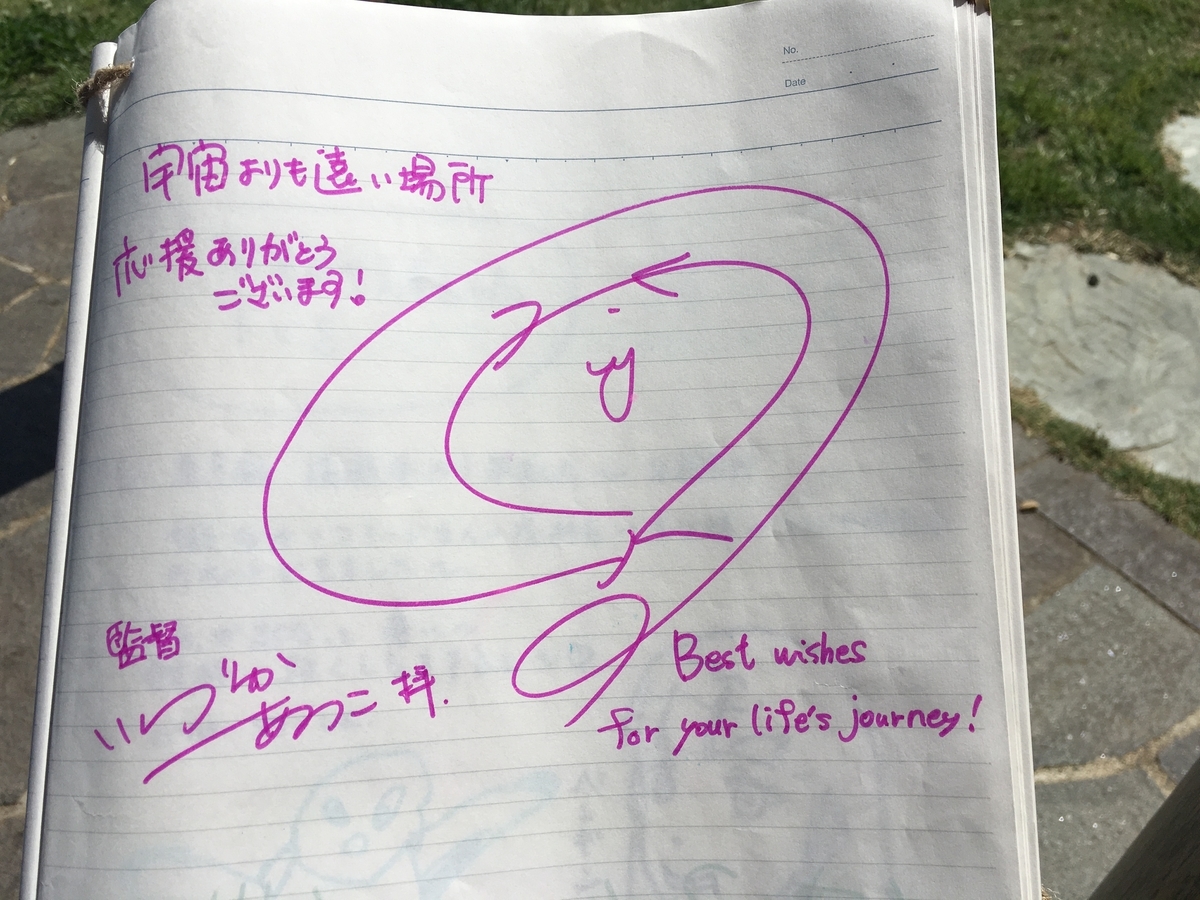 No.
Date
宇宙よりも遠い場所
応援ありがとう
ございます!
監督
いしづか
あつこ 拝.
Best wishes
for your life's journey!